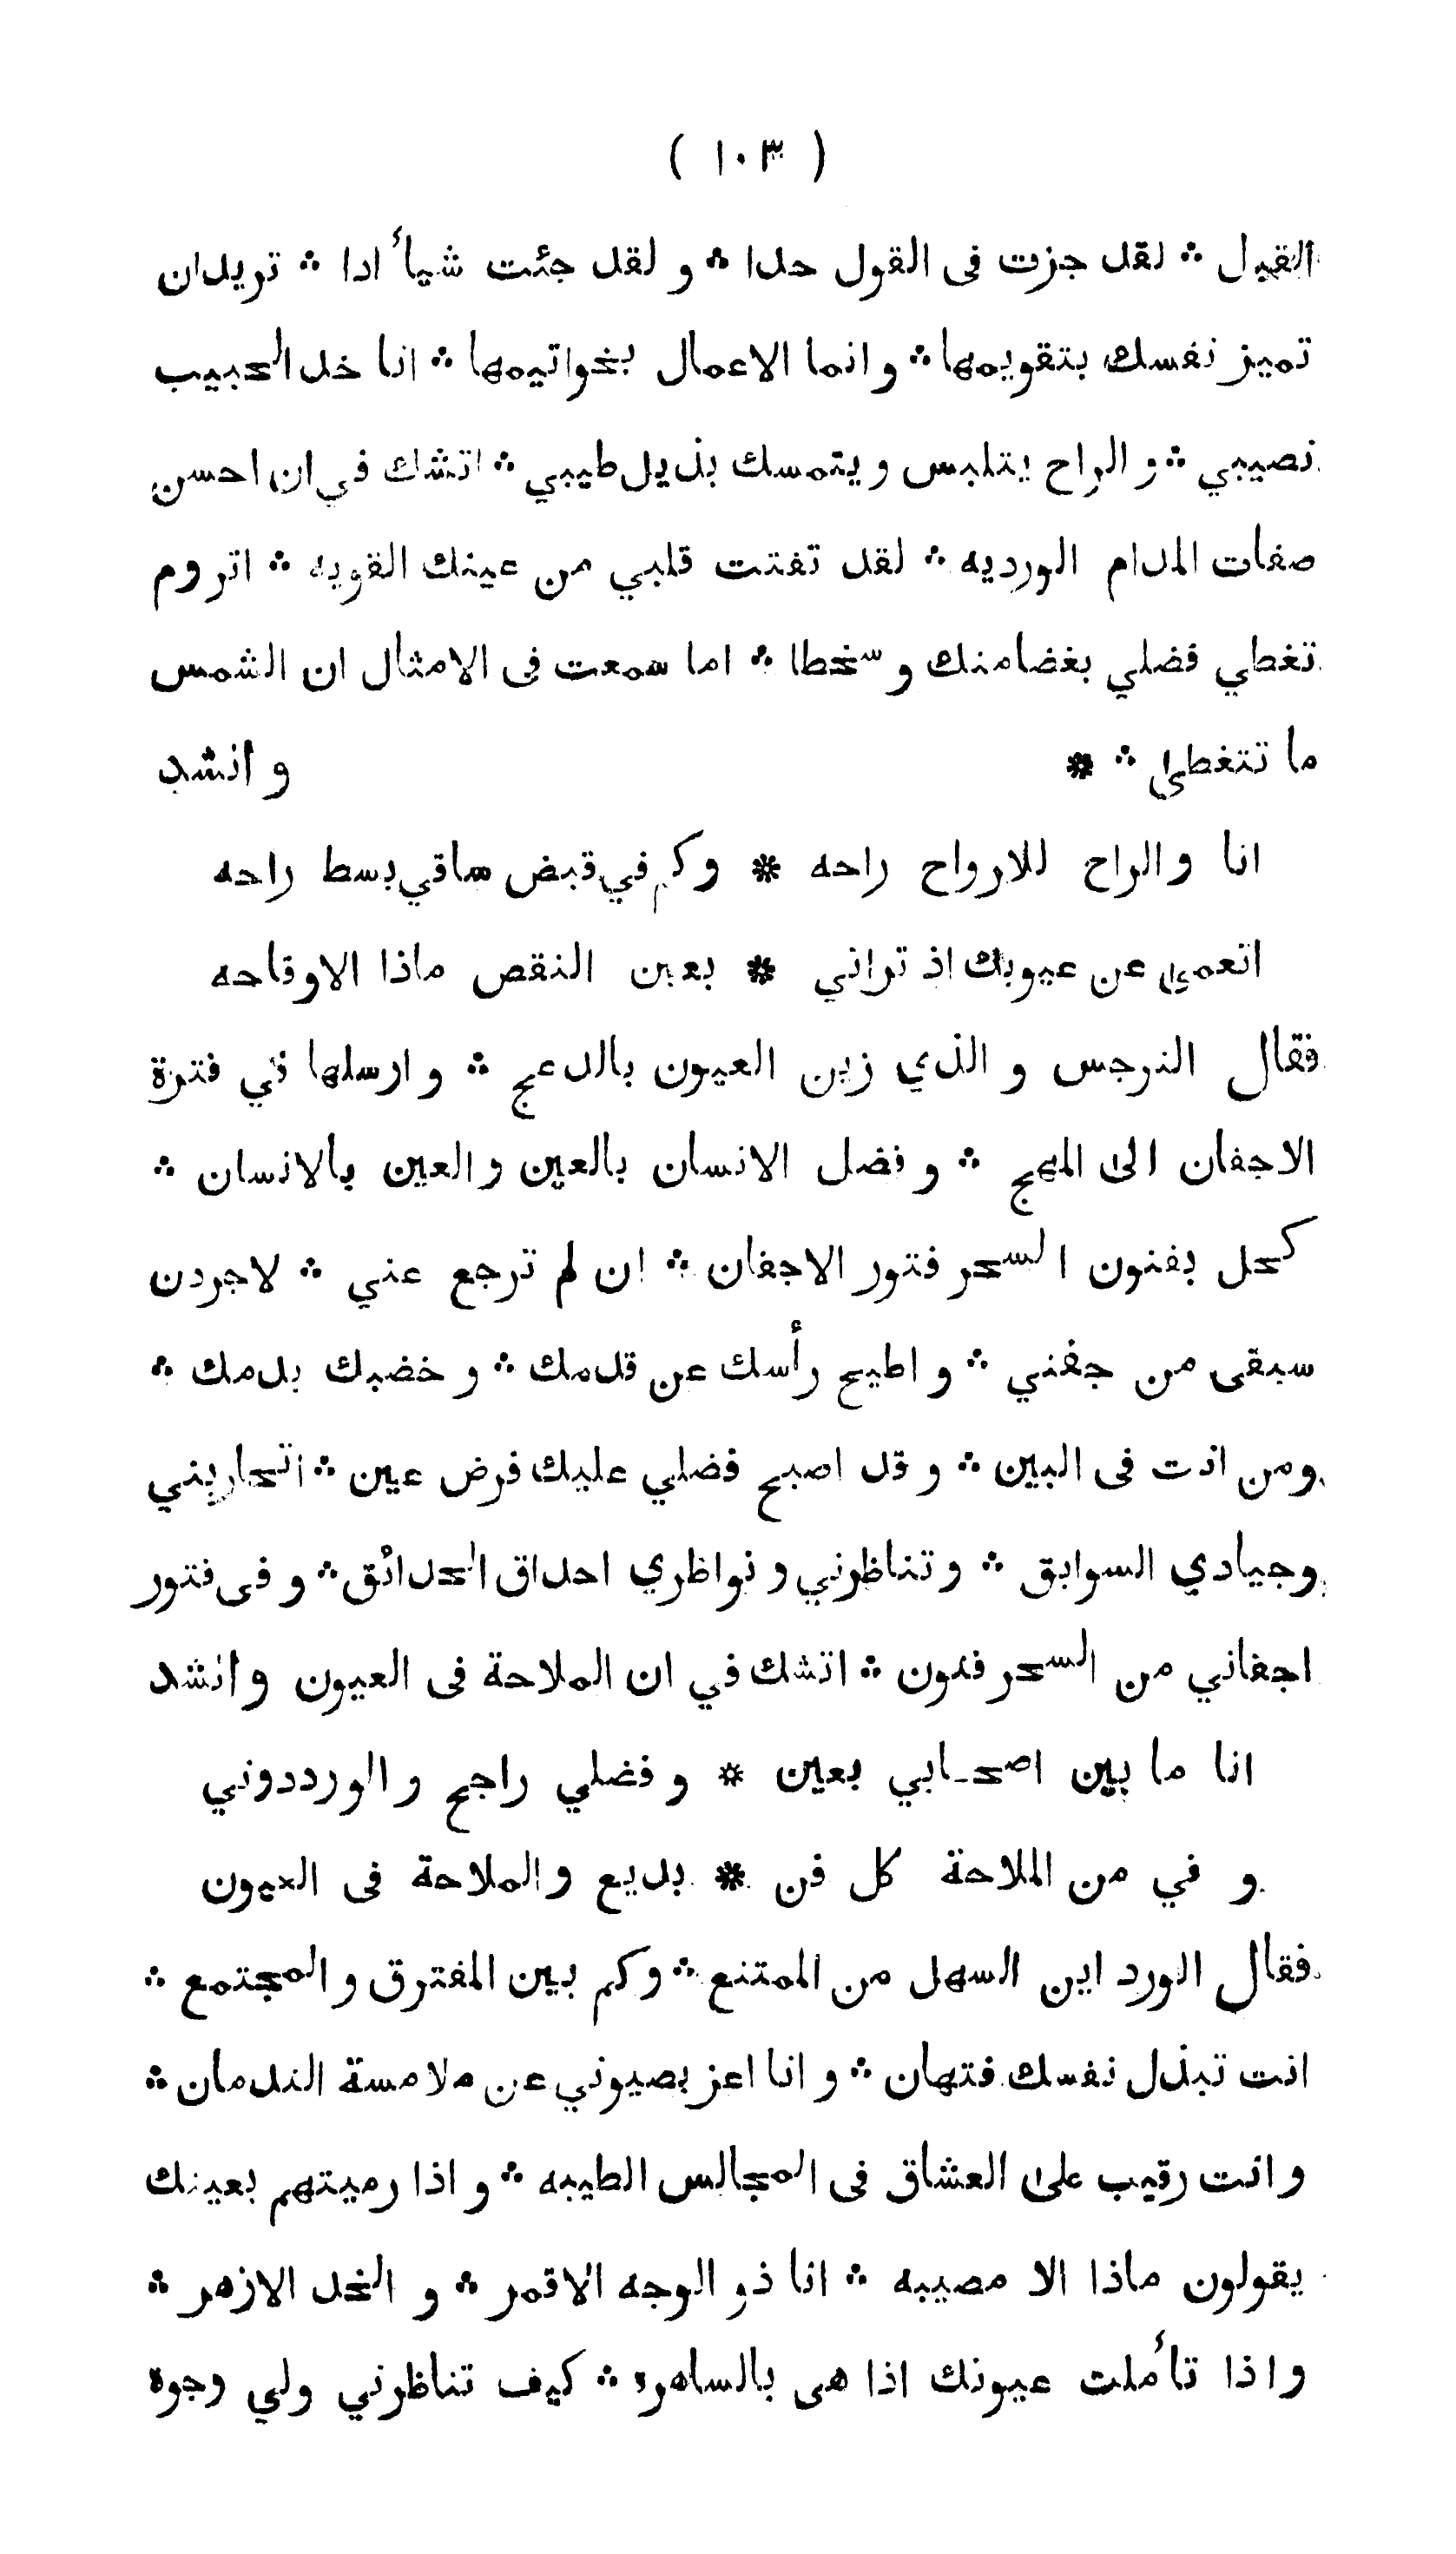 ( ١٠٣ )
القيل ∴ لقد جزت فى القول حدا ∴ و لقد جئت شيأ ادا ∴ تريدان
تميز نفسك بتقويمها ∴ و انما الاعمال بخواتيمها ∴ انا خد الحبيب
نصيبي ∴ و الراح يتلبس و يتمسك بذيل طيبي ∴ اتشك في ان احسن
صفات المدام الورديه ∴ لقد تفتت قلبي من عينك القويه ∴ اتروم
تغطي فضلي بغضامنك و سخطا ∴ اما سمعت فى الامثال ان الشمس
ما تتغطى ∴ * و انشد
انا والراح للارواح راحه * وكم في قبض ساقي بسط راحه
اتعمى عن عيوبك اذ تراني * بعين النقص ماذا الاوقاحه
فقال النرجس و الذي زين العيون بالدعج ∴ و ارسلها في فترة
الاجفان الى المهج ∴ و فضل الانسان بالعين و العين بالانسان ∴
كحل بفنون السحر فتور الاجفان ∴ ان لم ترجع عني ∴ لاجردن
سبقى من جفني ∴ و اطيح رأسك عن قدمك ∴ و خضبك بدمك ∴
ومن انت فى البين ∴ و قد اصبح فضلي عليك فرض عين ∴ اتحاربني
وجيادي السوابق ∴ و تناظرني و نواظري احداق الحدائق ∴ و فى فتور
اجفاني من السحر فنون ∴ اتشك في ان الملاحة فى العيون و انشد
انا ما بين اصحابي بعين * و فضلي راجح و الورددوني
و في من الملاحة كل فن * بديع والملاحة فى العيون
فقال الورد اين السهل من الممتنع ∴ وكم بين المفترق و المجتمع ∴
انت تبذل نفسك فتهان ∴ و انا اعز بصيوني عن ملامسة الندمان ∴
و انت رقيب على العشاق فى المجالس الطيبه ∴ و اذا رميتهم بعينك
يقولون ماذا الا مصيبه ∴ انا ذو الوجه الاقمر ∴ و الخد الازهر ∴
و اذا تأملت عيونك اذا هى بالساهره ∴ كيف تناظرني ولي وجوه